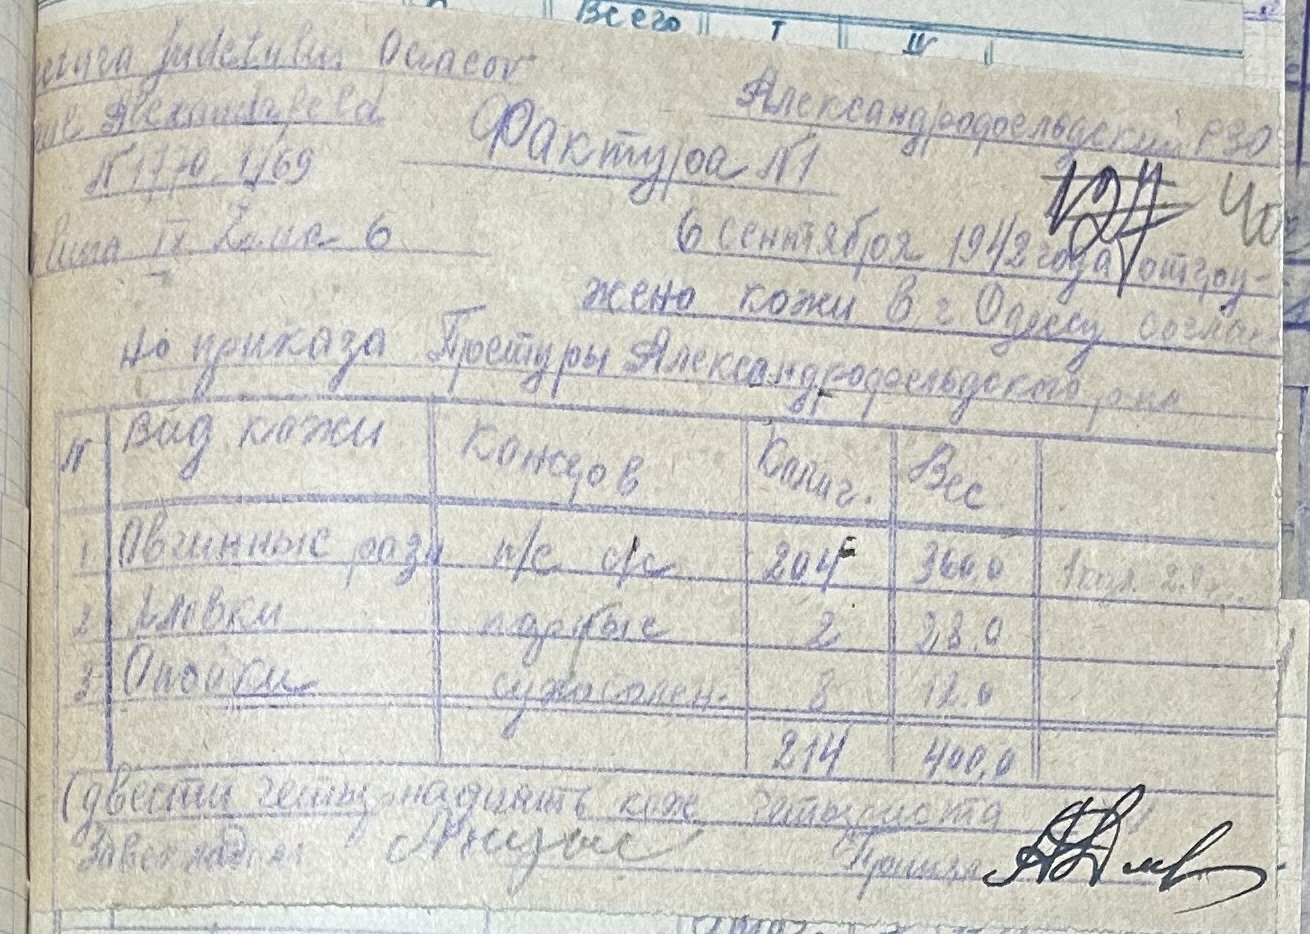 Всего I IV
Judetului Oceacov
Alexandrfeld
N 1770. 1769
Александрофельдский РЗО
Фактура N1
Луна IX Zeua 6
6 сентября 1942 года отгру-
жено кожи в г Одессу соглас-
но приказа Претуры Александрофельдского р-на
N Вид кожи Консров Колич. Вес
1. Овчинные разн п/с с/с 204 360,0
2 Яловки парные 2 28.0
3 Опойки сухосолен. 8 12.0
214 400,0
(двести четырнадцать кож четыреста
Завскладом Принял